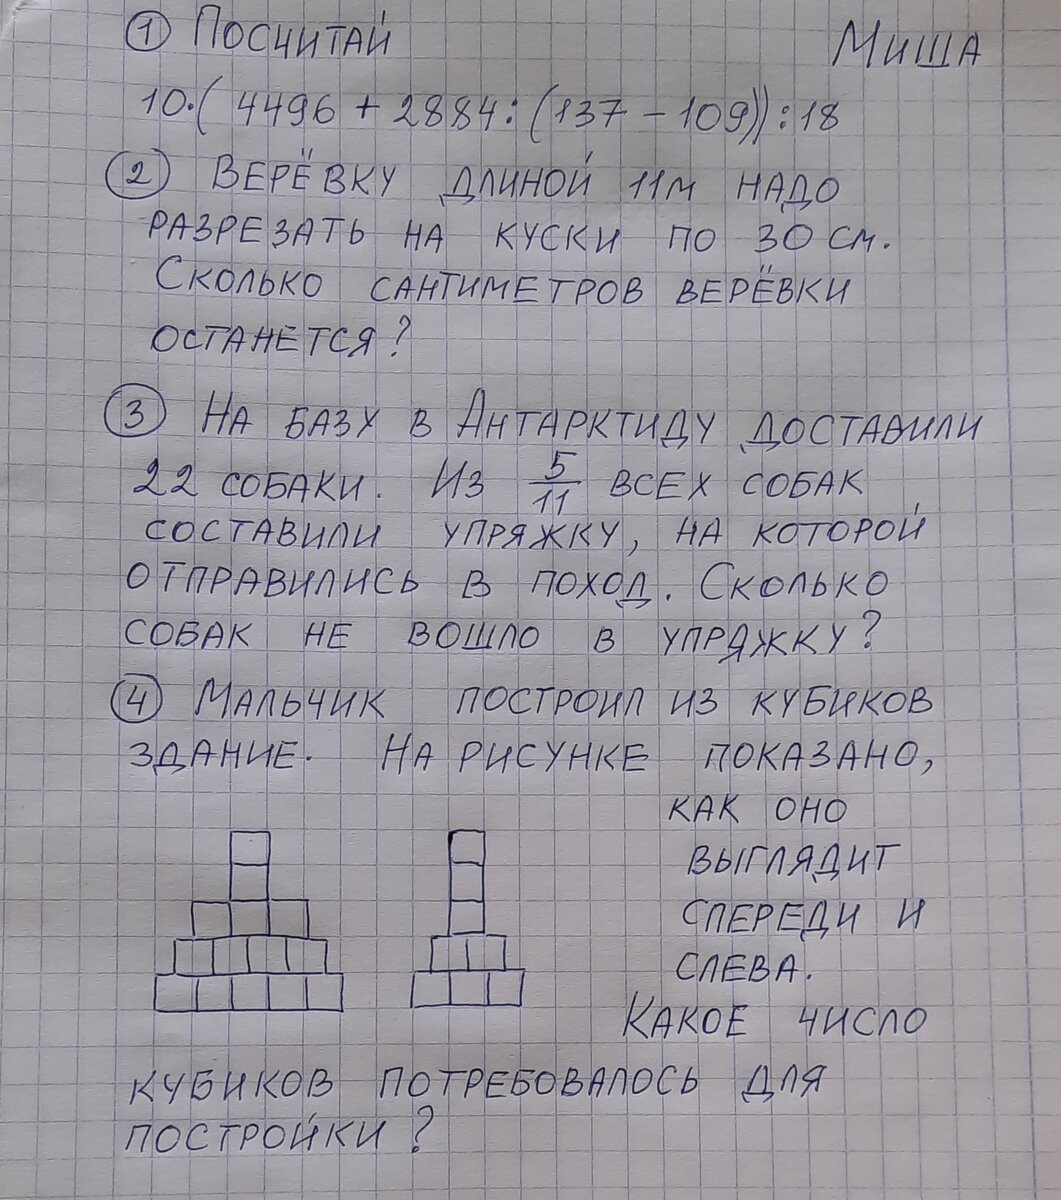 ① Посчитай
Миша
10·(4496 + 2884:(137 - 109)):18
② Верёвку длиной 11м надо
разрезать на куски по 30 см.
Сколько сантиметров верёвки
останется?
③ На базу в Антарктиду доставили
22 собаки. Из 5/11 всех собак
составили упряжку, на которой
отправились в поход. Сколько
собак не вошло в упряжку?
④ Мальчик построил из кубиков
здание. На рисунке показано,
как оно
выглядит
спереди и
слева.
Какое число
кубиков потребовалось для
постройки?